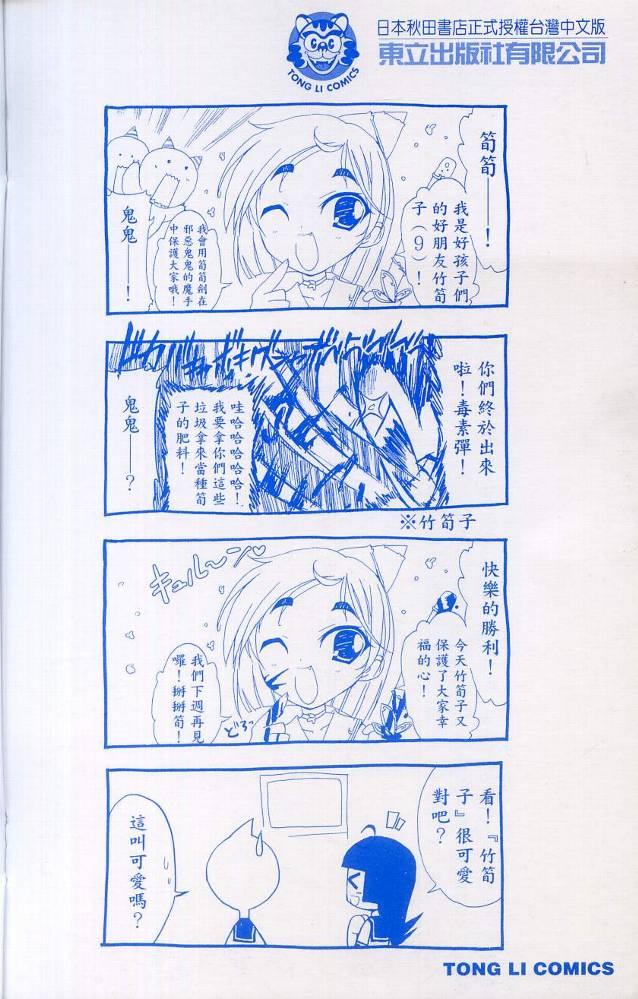 TONG LI COMICS
日本秋田書店正式授權台灣中文版
東立出版社有限公司
筍筍——！
我是好孩子們
的好朋友竹筍
子（9）！
我會用筍筍劍在
邪惡鬼鬼的魔手
中保護大家哦！
鬼鬼——！
你們終於出來
啦！毒素彈！
哇哈哈哈哈哈！
我要拿你們這些
垃圾拿來當種筍
子的肥料！
鬼鬼——？
※竹筍子
快樂的勝利！
今天竹筍子又
保護了大家幸
福的心！
キュル〜ン♡
我們下週再見
囉！掰掰筍！
どろっ
看！『竹筍
子』很可愛
對吧？
這叫可愛嗎？
TONG LI COMICS